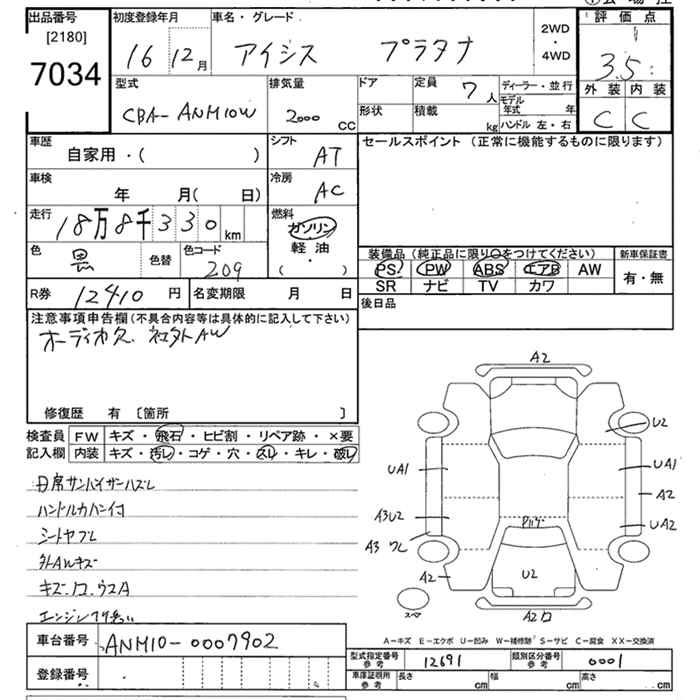 出品番号 初度登録年月 車名・グレード 評価点
[2180]
7034 16 12月 アイシス プラタナ 2WD・4WD 3.5
型式 排気量 ドア 定員 7人 ディーラー・並行 外装 内装
CBA-ANM10W 2000 CC 形状 積載 kg モデル年式 年 C C
ハンドル 左・右
車歴 シフト セールスポイント (正常に機能するものに限ります)
自家用・( ) AT
車検 冷房
年 月( 日) AC
走行 燃料
18万8千330 km ガソリン
軽油
・
( )
色 黒 色替 色コード 209
装備品 (純正品に限り○をつけてください) 新車保証書
PS PW ABS エアB AW 有・無
SR ナビ TV カワ
R券 12410 円 名変期限 月 日 後日品
注意事項申告欄 (不具合内容等は具体的に記入して下さい)
オーディオ欠 社外AW
修復歴 有 [箇所 ]
検査員 FW キズ・飛石・ヒビ割・リペア跡・×要
記入欄 内装 キズ・汚レ・コゲ・穴・スレ・キレ・破レ
日席サンバイザーハズレ
ハンドルカバー付
シートヤブレ
外AWキズ
A2
U2
UA1 UA1
A2
A3U2 UA2
A3 ワレ
A2 U2
A2
スペ
A－キズ E－エクボ U－凹み W－補修跡 S－サビ C－腐食 XX－交換済
車台番号 ANM10-0007902
型式指定番号 参考 12691 類別区分番号 参考 0001
登録番号 車庫証明用 参考 長さ cm 幅 cm 高さ cm